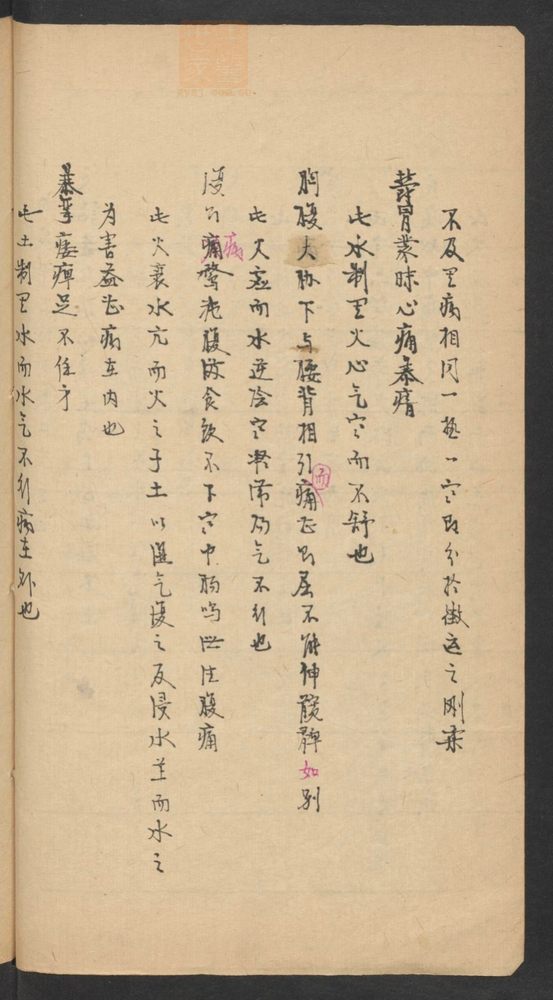 不及里病相同一热一寒即分於徵运之刚柔
鬱冒蒙昧心痛暴瘖
此水制里火心气穷而不舒也
胸腹大胁下与腰背相引而痛甚则屈不能伸髋髀如别
此火衰而水逆阴寒凝滞为气不行也
复则病鶩溏腹满食饮不下寒中肠鸣泄注腹痛
此火衰水亢而火之子土以湿气复之反浸水兰而水之
为害益甚病在内也
暴挛痿痹足不任身
此土制里水而水气不行病在外也